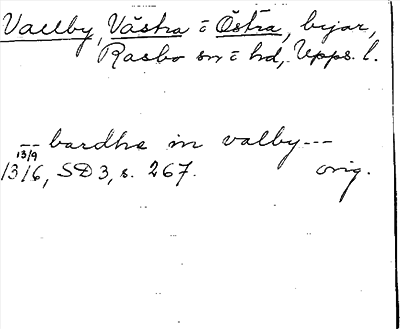 Vallby, Västra o Östra, byar,
Rasbo sn o hd, Upps. l.
-- bardhe in valby ---
13/9
1316, SD 3, s. 267. orig.